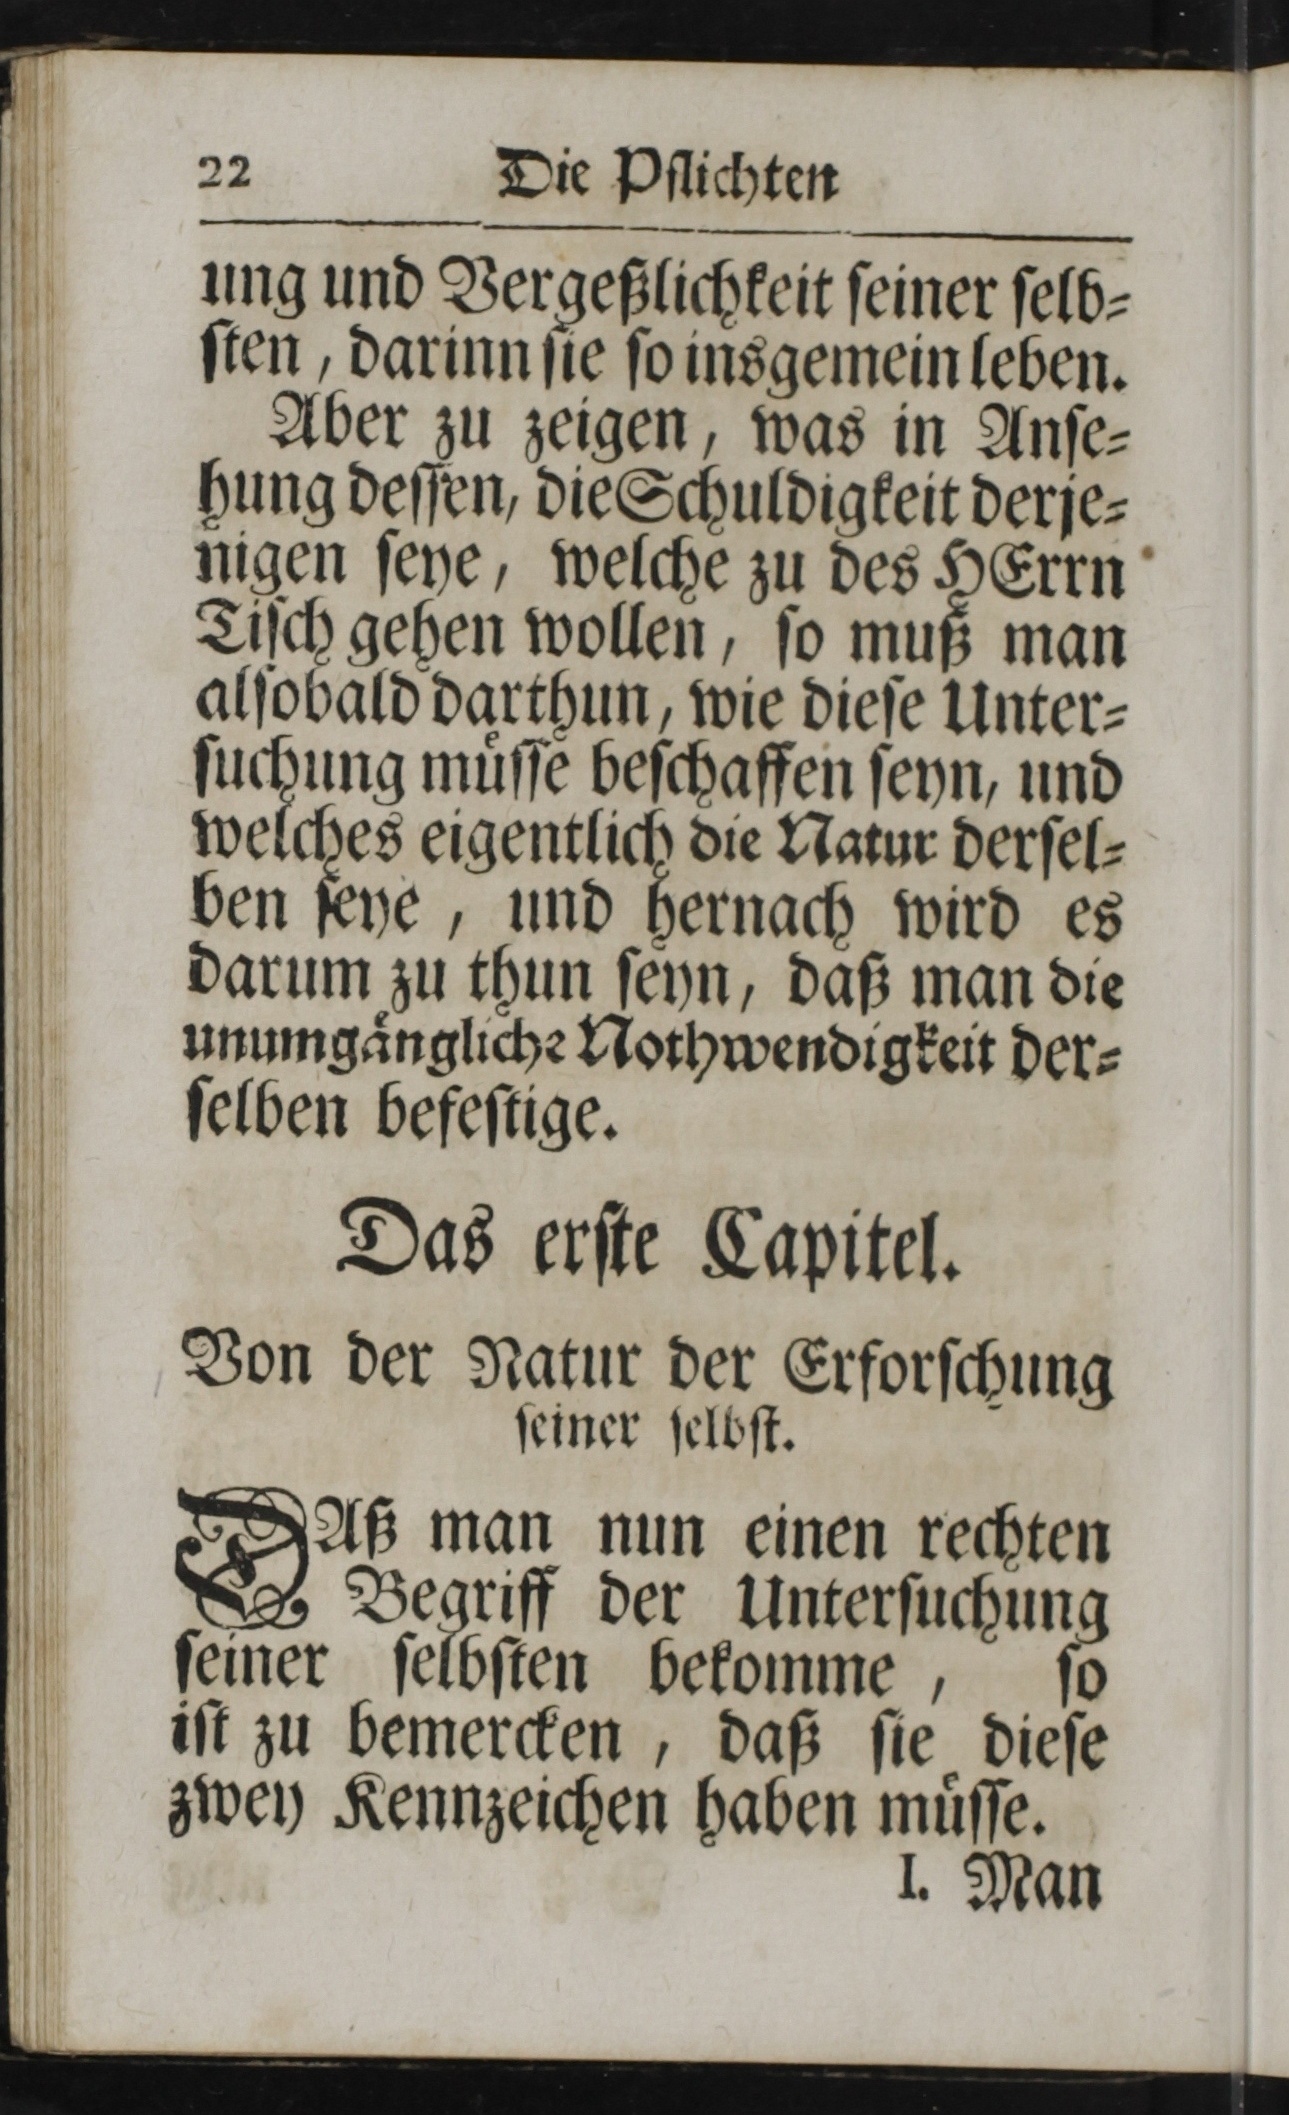 22 Die Pflichten
ung und Vergeßlichkeit seiner selb-
sten, darinn sie so insgemein leben.
Aber zu zeigen, was in Anse-
hung dessen, die Schuldigkeit derje-
nigen seye, welche zu des HErrn
Tisch gehen wollen, so muß man
alsobald darthun, wie diese Unter-
suchung müsse beschaffen seyn, und
welches eigentlich die Natur dersel-
ben seye, und hernach wird es
darum zu thun seyn, daß man die
unumgängliche Nothwendigkeit der-
selben befestige.
Das erste Capitel.
Von der Natur der Erforschung
seiner selbst.
DAß man nun einen rechten
Begriff der Untersuchung
seiner selbsten bekomme, so
ist zu bemercken, daß sie diese
zwey Kennzeichen haben müsse.
I. Man